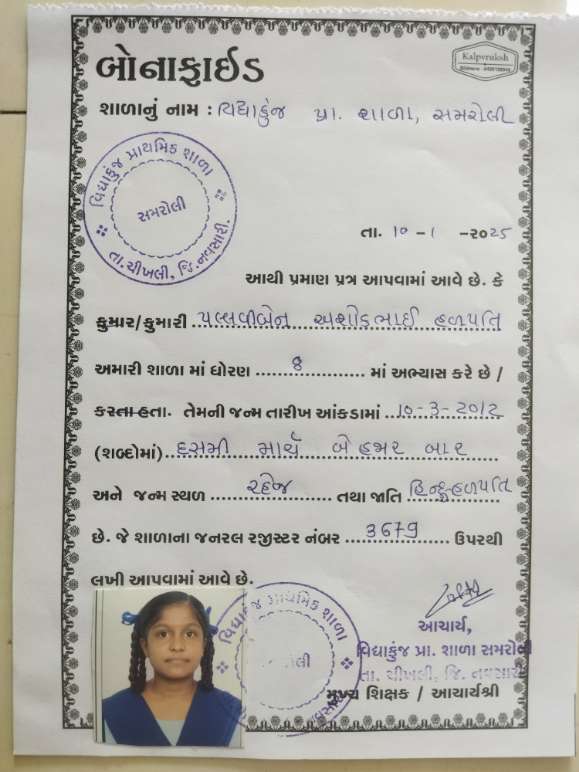 બોનાફાઈડ
Kalpvruksh
શાળાનું નામ : વિદ્યાકુંજ પ્રા. શાળા, સમરોલી
વિદ્યાકુંજ પ્રાથમિક શાળા
સમરોલી
તા. ચીખલી, જિ. નવસારી.
તા. ૧૦ - ૧ - ૨૦૨૫
આથી પ્રમાણ પત્ર આપવામાં આવે છે. કે
કુમાર/કુમારી પલ્લવીબેન અશોકભાઈ હળપતિ
અમારી શાળા માં ધોરણ 8 માં અભ્યાસ કરે છે /
કરતા હતા. તેમની જન્મ તારીખ આંકડામાં 10-3-2012
(શબ્દોમાં) દસમી માર્ચ બે હજાર બાર
અને જન્મ સ્થળ રહેજ તથા જાતિ હિન્દુ હળપતિ
છે. જે શાળાના જનરલ રજીસ્ટર નંબર 3679 ઉપરથી
લખી આપવામાં આવે છે.
આચાર્ય,
વિદ્યાકુંજ પ્રા. શાળા સમરોલી
તા. ચીખલી, જિ. નવસારી
મુખ્ય શિક્ષક / આચાર્યશ્રી